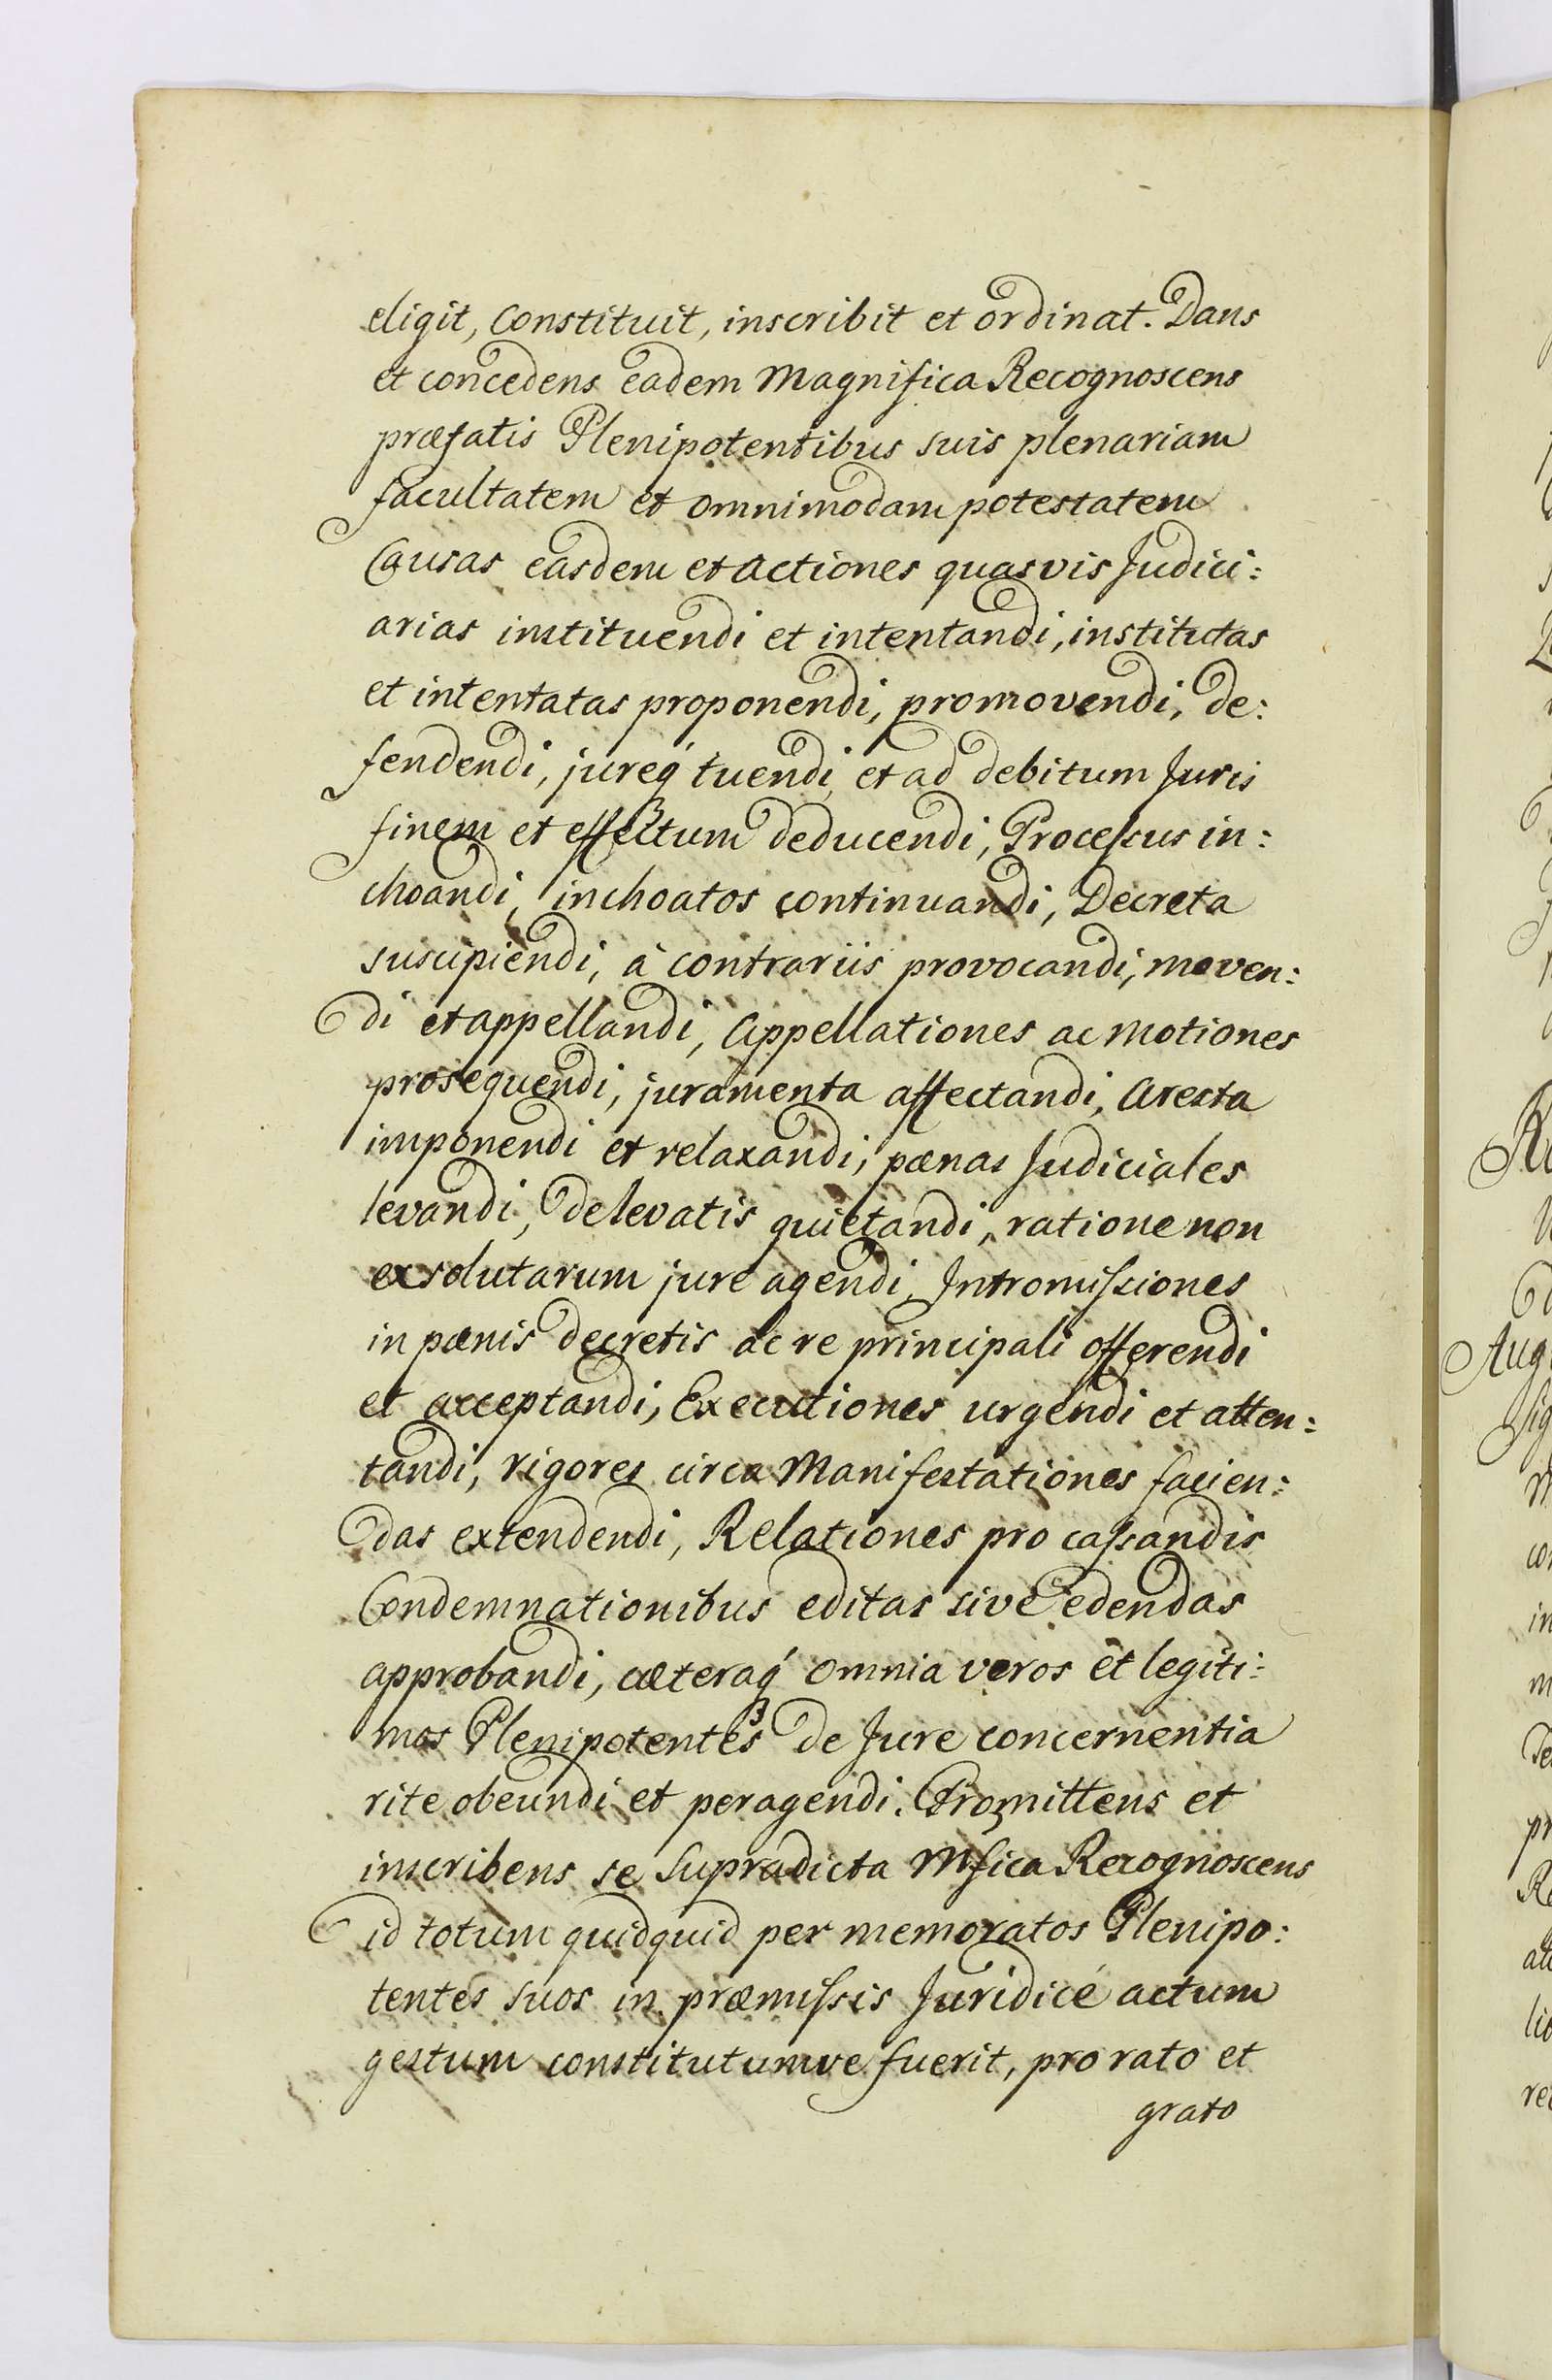 eligit, Constituit, inscribit et ordinat. Dans
et concedens eadem Magnifica Recognoscens
præfatis Plenipotentibus suis plenariam
facultatem et omnimodam potestatem
Causas easdem et actiones quasvis Judici:
arias instituendi et intentandi, institutas
et intentatas proponendi, promovendi, de:
fendendi, jureq́ tuendi et ad debitum Juris
finem et effectum deducendi, Processus in:
choandi, inchoatos continuandi, Decreta
suscipiendi, à contrariis provocandi, moven:
di et appellandi, Appellationes ac motiones
prosequendi, juramenta affectandi, Aresta
imponendi et relaxandi, pænas Judiciales
levandi, de levatis quietandi, ratione non
exsolutarum jure agendi, Intromissiones
in pænis decretis ac re principali offerendi
et acceptandi, Executiones urgendi et atten:
tandi, rigores circa Manifestationes facien:
das extendendi, Relationes pro cassandis
Condemnationibus editas sive edendas
approbandi, cæteraq́ omnia veros et legiti:
mos Plenipotentes de Jure concernentia
rite obeundi et peragendi. Promittens et
inscribens se supradicta Mfica Recognoscens
id totum quidquid per memoratos Plenipo:
tentes suos in præmissis Juridicé actum
gestum constitutumve fuerit, pro rato et
grato